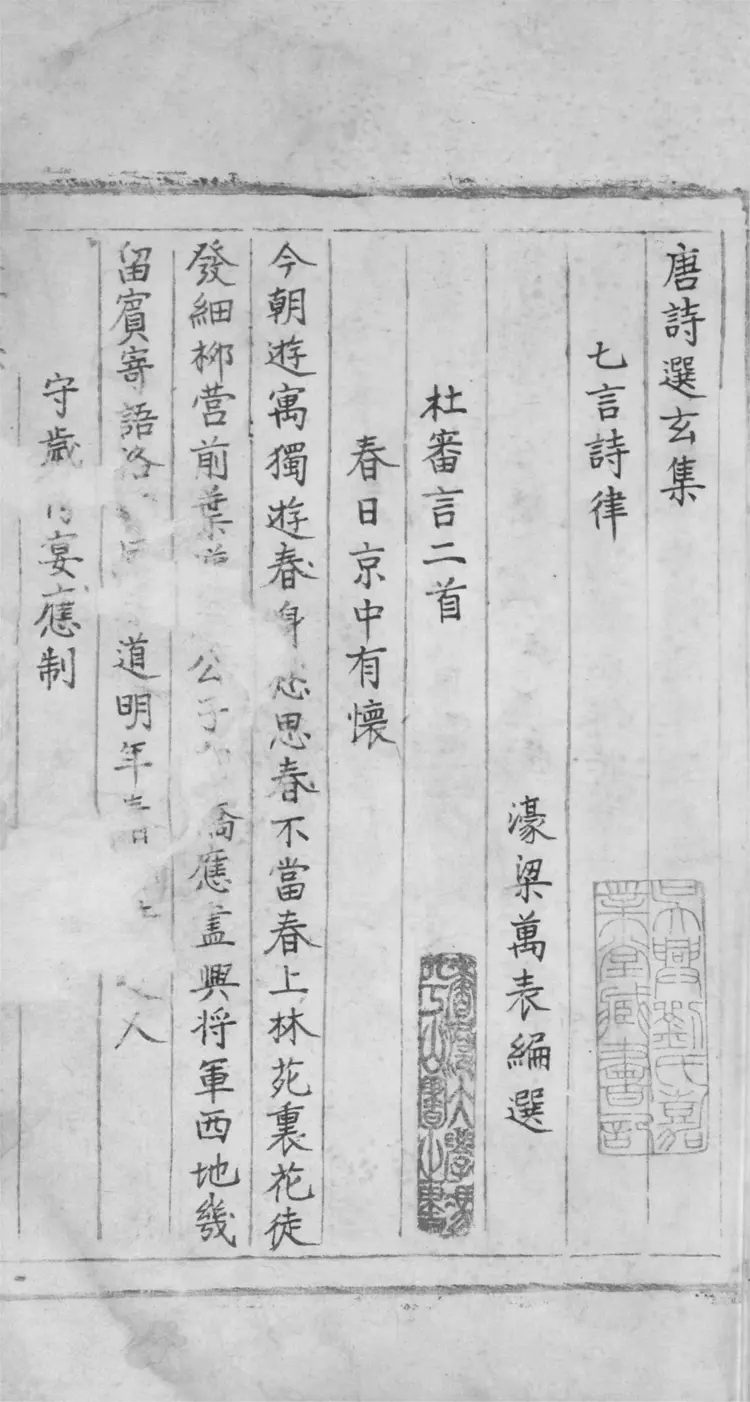 唐詩選玄集
七言詩律
濠梁萬表編選
杜審言二首
春日京中有懷
今朝遊寓獨遊春身思春不當春上林苑裏花徒
發細柳营前葉公子應盡興将軍西地幾
留賔寄語洛道明年人
守歲宴應制
吳興劉氏嘉
業堂藏書記